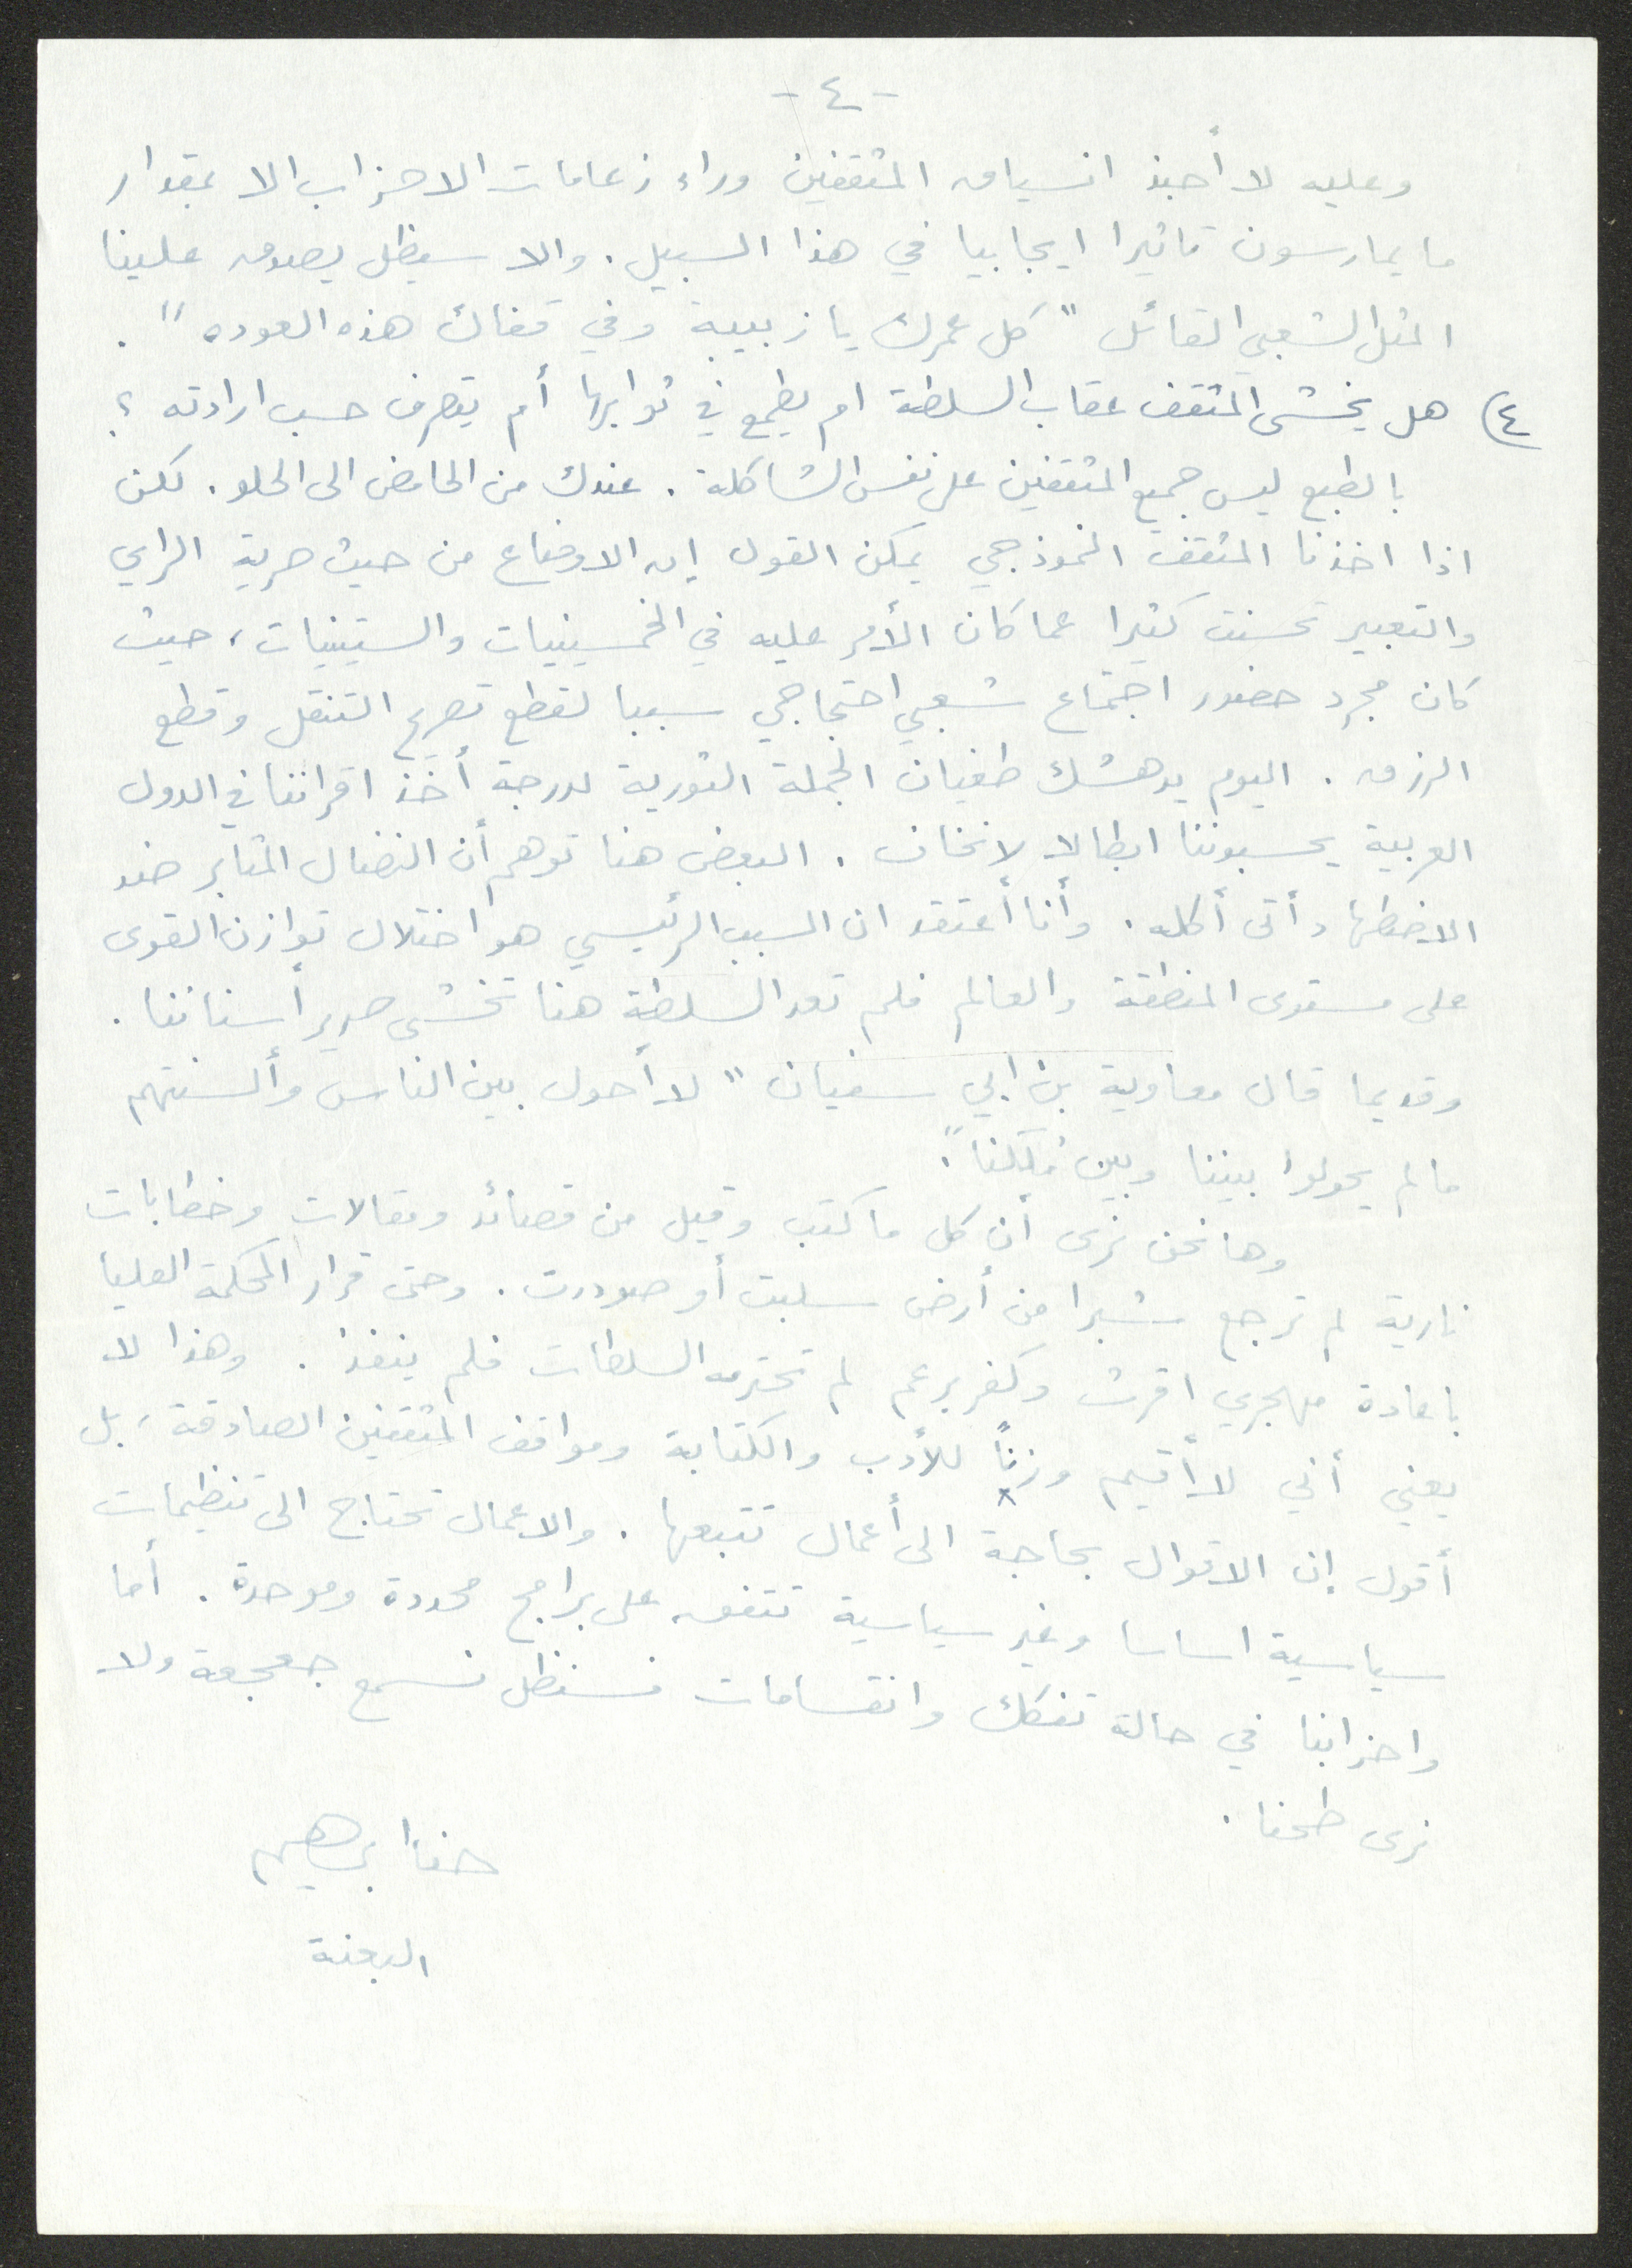 - ٤ -
وعليه لا أحبذ انسياق المثقفين وراء زعامات الاحزاب الا بمقدار
ما يمارسون تاثيرا ايجابيا في هذا السبيل. والا سيظل يصدق علينا
المثل الشعبي القائل "كل عمرك يا زبيبة وفي قفاك هذه العوده".
٤) هل يخشى المثقف عقاب السلطة ام يطمع في ثوابها أم يتصرف حسب ارادته ؟
بالطبع ليس جميع المثقفين على نفس الشاكلة. عندك من الحامض الى الحلو. لكن
اذا اخذنا المثقف النموذجي يمكن القول إن الاوضاع من حيث حرية الراي
والتعبير تحسنت كثيرا عما كان الأمر عليه في الخمسينيات والستينيات، حيث
كان مجرد حضور اجتماع شعبي احتجاجي سببا لقطع تصريح التنقل وقطع
الرزق. اليوم يدهشك طغيان الجملة الثورية لدرجة أخذ اقراننا في الدول
العربية يحسبوننا ابطالا لا نخاف. البعض هنا توهم أن النضال المثابر ضد
الاضطهاد أتى أكله. وأنا أعتقد ان السبب الرئيسي هو اختلال توازن القوى
على مستوى المنطقة والعالم فلم تعد السلطة هنا تخشى صرير أسناننا.
وقديما قال معاوية بن ابي سفيان "لا أحول بين الناس وألسنتهم
ما لم يحولوا بيننا وبين مُلكنا".
وها نحن نرى أن كل ما كتب وقيل من قصائد ومقالات وخطابات
نارية لم ترجع شبرا من أرض سلبت أو صودرت. وحتى قرار المحكمة العليا
باعادة مهجري اقرث وكفر برعم لم تحترمه السلطات فلم ينفذ. وهذا لا
يعني أني لا أقيم وزنًا للأدب والكتابة ومواقف المثقفين الصادقة، بل
أقول إن الاقوال بحاجة الى أعمال تتبعها. والاعمال تحتاج الى تنظيمات
سياسية اساسا وغير سياسية تتفق على برامج محددة وموحدة. أما
واحزابنا في حالة تفكك وانقسامات فسنظل نسمع جعجعة ولا
نرى طحنا.
حنا ابرهيم
البعنة